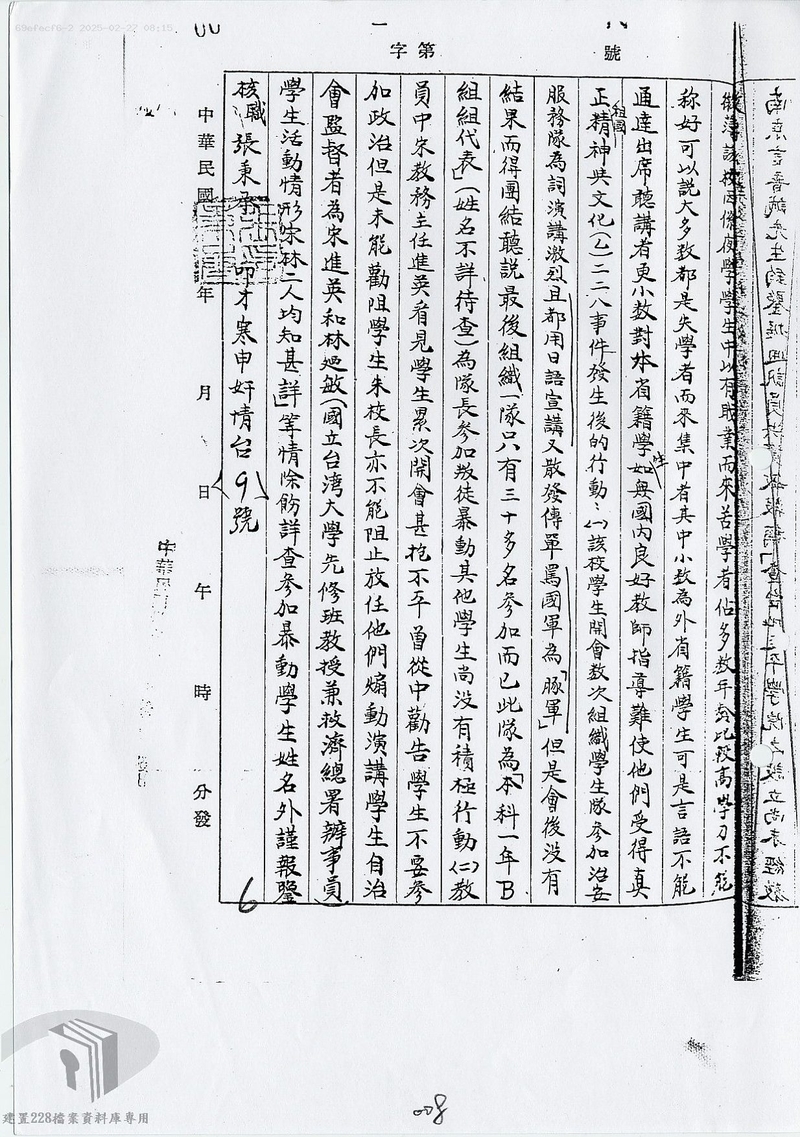 69efecf6-2 2025-02-27 08:15
第 字 號
該校因係夜學學生中以有職業而來苦學者佔多数年齡比較高学力不能
称好可以說大多数都是失學者而來集中者其中小数為外省籍學生可是言語不能
通達出席聽講者更小数對本省籍學生如無國內良好教師指導難使他們受得真
正祖國精神與文化(厶)二二八事件發生後的行動:(一)該校學生開會数次組織學生隊參加治安
服務隊為詞演講激烈且都用日語宣講又散發傳單罵國軍為「豚軍」但是會後没有
結果而得團結聽説最後組織一隊只有三十多名參加而已此隊為「本科一年B
組組代表」(姓名不詳待查)為隊長參加叛徒暴動其他學生尚没有積極行動(二)教
員中宋教務主任進英看見學生累次開會甚抱不平曾從中勸告學生不要參
加政治但是未能勸阻學生朱校長亦不能阻止放任他們煽動演講學生自治
會監督者為宋進英和林廼敏(國立台湾大學先修班教授兼救濟總署辦事員)
學生活動情形宋林二人均知甚詳」等情除飭詳查參加暴動學生姓名外謹報鑒
核職張秉承叩才寒申奸情台(9)號
中華民國 年 月 日 午 時 分發
6
008
建置228檔案資料庫專用